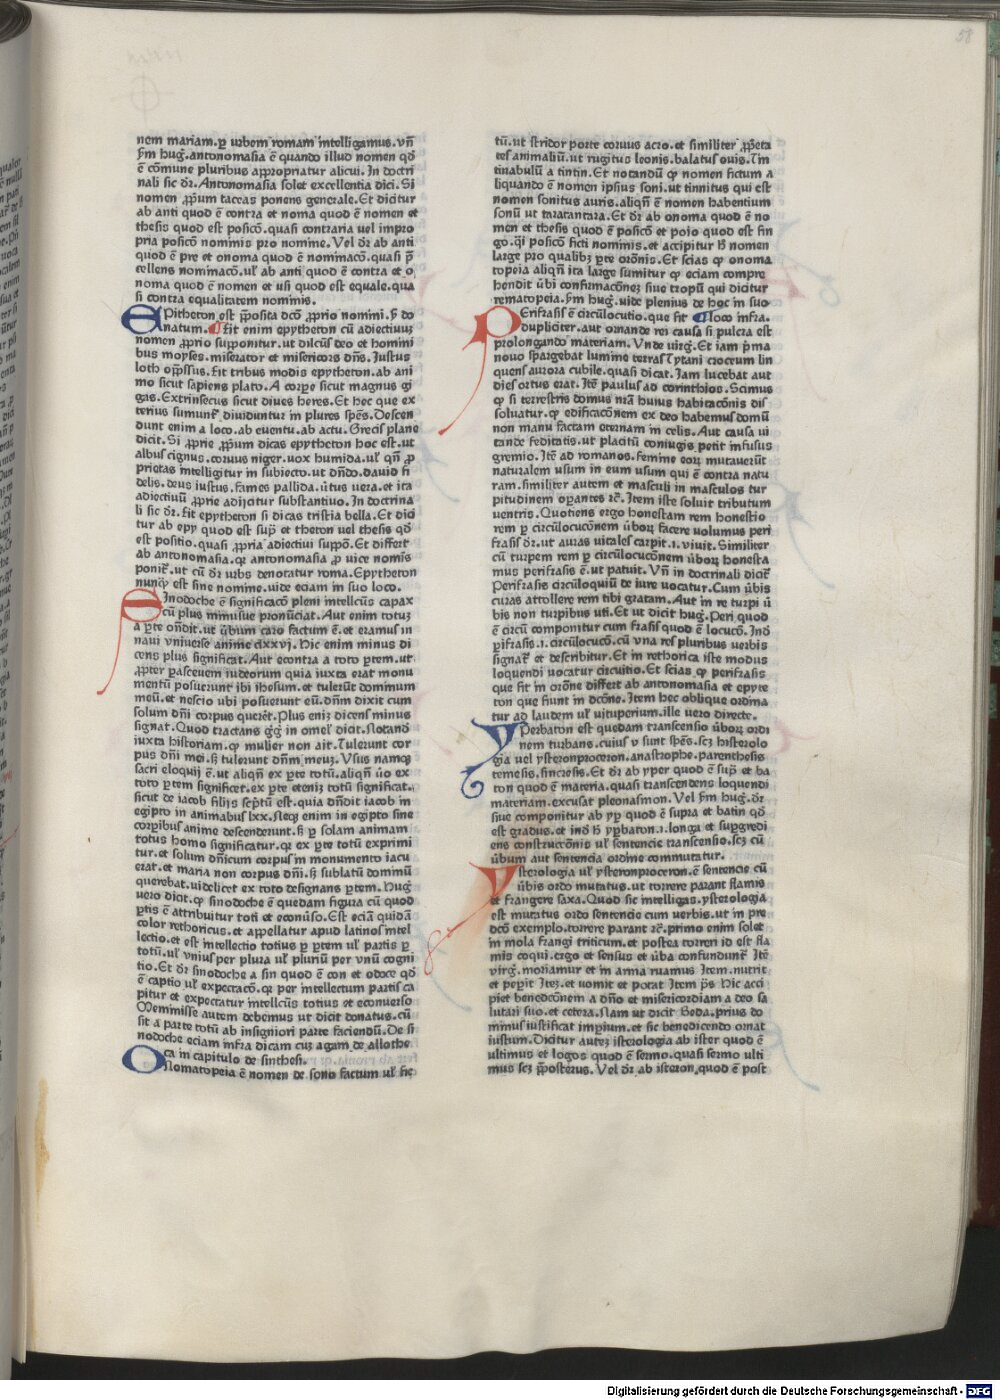 58
nem mariam.ꝑ urbem romam intelligamus.vn̄
ẜm hug̃.antonomasia ē quando illud nomen qd̄
ē cōmune pluribus appropriatur alicui.In doctri
nali sic dr̄.Antonomasia solet excellentia dici.Si
nomen ꝓpium taceas ponens generale.Et dicitur
ab anti quod ē contra et noma quod ē nomen et
thesis quod est posicō.quasi contraria uel impro
pria posicō nominis pro nomine. Vel dr̄ ab anti
quod ē pre et onoma quod ē nominacō.quasi p̄
cellens nominacō.ul̓ ab anti quod ē contra et o,
noma quod ē nomen et usi quod est equale.qua
si contra equalitatem nominis.
EPitheton est p̄posita dcō ꝓprio nomini.ẜ do
natum. ¶ Fit enim epytheton cū adiectiuuꝫ
nomen ꝓprio supponitur.ut dilcūs deo et homini
bus moyses.miserator et misericors dn̄s.Iustus
loth opp̄ssus.Fit tribus modis epytheton.ab ani
mo sicut sapiens plato.A corpe sicut magnus gi
gas.Extrinsecus sicut diues heres.Et hec que ex
terius sumunt̃ diuiduntur in plures sp̄es.Descen
dunt enim a loco.ab euentu.ab actu.Grecis plane
dicit.Si ꝓprie ꝓpium dicas epytheton hoc est.ut
albus cignus.coruus niger.uox humida.ul̓ qn̄ ꝓ
prietas intelligitur in subiecto.ut dn̄do.dauid fi
delis.deus iustus.fames pallida.ūtus uera.et ita
adiectiuū ꝓprie adijcitur substantiuo.In doctrina
li sic dr̄.fit epytheton si dicas tristia bella.Et dici
tur ab epy quod est sup̄ et theton uel thesis qd̄
est positio.quasi ꝓpria adiectiui suppō.Et differt
ab antonomasia.qꝛ antonomasia ꝓ uice nomīs
ponit̃.ut cū dr̄ urbs denotatur roma.Epytheton
nunqꝫ est sine nomine.uide eciam in suo loco.
SInodoche ē significacō pleni intellcūs capax
cū plus minusue pronūciat.Aut enim totuꝫ
a ꝑte on̄dit.ut ūbum caro factum ē.et eramus in
naui vniuerse anime clxxvj.Hic enim minus di
cens plus significat.Aut econtra a toto ꝑtem.ut
ꝓpter ꝑasceuem iudeorum quia iuxta erat monu
mentū posuerunt ibi ihesum.et tulerūt dominum
meū.et nescio ubi posuerunt eū.dn̄m dixit cum
solum dn̄i corpus querēt.Plus eniꝫ dicens minus
signat.Quod tractans g̃g̃ in omel̓ dicit.Notand̄
iuxta historiam.qꝫ mulier non ait.Tulerunt cor
pus dn̄i mei.sꝫ tulerunt dn̄m meuꝫ.Vsus namqꝫ
sacri eloquij ē.ut aliqn̄ ex ꝑte totū.aliqn̄ ūo ex
toto ꝑtem significet.ex ꝑte eteniꝫ totū significat.
sicut de iacob filijs sc̄ptū est.quia dn̄dit iacob in
egipto in animabus lxx.Necꝫ enim in egipto sine
corꝑibus anime descenderunt.sꝫ ꝑ solam animam
totus homo significatur.qꝛ ex ꝑte totū exprimi
tur.et solum dn̄icum corpus in monumento iacu
erat.et maria non corpus dn̄i.sꝫ sublatū dominū
querebat.uidelicet ex toto designans ꝑtem.Hug̃
uero dicit.qꝫ sinodoche ē quedam figura cū quod
ꝑtis ē attribuitur toti et econūso.Est eciā quidā
color rethoricus.et appellatur apud latinos intel
lectio.et est intellectio totius ꝑ ꝑtem ul̓ partis ꝑ
totū.ul̓ vnius per plura ul̓ pluriū per vnū cogni
tio.Et dr̄ sinodoche a sin quod ē con et odoce qd̄
ē captio ul̓ expectacō.qꝛ per intellectum partis ca
pitur et expectatur intellcūs totius et econuerso
Meminisse autem debemus ut dicit donatus.cū
fit a parte totū ab insigniori parte faciendū.De si
nodoche eciam infra dicam cuꝫ agam de allothe
ca in capitulo de sinthesi.
ONomatopeia ē nomen de sono factum ul̓ fic
tū.ut stridor porte coruus acro.et similiter ꝓp̄eta
tes animaliū.ut rugitus leonis.balatus ouis.Tin
tinabulū a tintin.Et notandū qꝫ nomen fictum a
liquando ē nomen ipsius soni.ut tinnitus qui est
nomen sonitus auris.aliqn̄ ē nomen habentium
sonū ut taratantara.Et dr̄ ab onoma quod ē no
men et thesis quod ē posicō et poio quod est fin
go.q̄i posicō ficti nominis.et accipitur hꝫ nomen
large pro qualibꝫ ꝑte orōnis.Et scias qꝫ onoma
topeia aliqn̄ ita large sumitur qꝫ eciam compre
hendit ūbi confirmacōneꝫ siue tropū qui dicitur
rematopeia.ẜm hug̃.uide plenius de hoc in suo
PErifrasis ē circūlocutio.que fit ¶ loco infra.
dupliciter.aut ornande rei causa si pulcra est
prolongando materiam. Vnde uirg̃.Et iam p̄ma
nouo spargebat lumine terras Tytani croceum lin
quens aurora cubile.quasi dicat.Iam lucebat aut
dies ortus erat.Itē paulus ad corinthios.Scimus
qꝫ si terrestris domus nr̄a huius habitacōnis dis
soluatur.qꝫ edificacōnem ex deo habemus domū
non manu factam eternam in celis.Aut causa ui
tande feditatis.ut placitū coniugis petit infusus
gremio.Itē ad romanos.femine eoꝝ mutauerūt
naturalem usum in eum usum qui ē contra natu
ram.similiter autem et masculi in masculos tur
pitudinem oꝑantes ꝛc̄.Item iste soluit tributum
uentris.Quotiens ergo honestam rem honestio
rem ꝑ circūlocucōnem ūboꝝ facere volumus peri
frasis dr̄.ut auras uitales carpit.i.viuit.Similiter
cū turpem rem ꝑ circūlocucōnem ūboꝝ honesta
mus perifrasis ē.ut patuit.Vn̄ in doctrinali dicit̃
Perifrasis circūloquiū de iure vocatur.Cum ūbis
curas attollere rem tibi gratam.Aut in re turpi ū
bis non turpibus uti.Et ut dicit hug̃.Peri quod
ē circū componitur cum frasis quod ē locucō.Ind̄
ꝑifrasis.i.circūlocucō.cū vna res pluribus uerbis
signat̃ et describitur.Et in rethorica iste modus
loquendi uocatur circuitio.Et scias qꝫ perifrasis
que fit in orōne differt ab antonomasia et epyte
ton que fiunt in dcōne.Item hec oblique ordina
tur ad laudem ul̓ uituperium.ille uero directe.
YPerbaton est quedam transcensio ūboꝝ ordi
nem turbans.cuius v sunt sp̄es.scꝫ histerolo
gia uel ysteronproceron.anastrophe.parenthesis
temesis.sincresis.Et dr̄ ab yper quod ē sup̄ et ba
ton quod ē materia.quasi transcendens loquendi
materiam.excusat pleonasmon. Vel ẜm hug̃.dr̄
siue componitur ab yꝑ quod ē supra et batin qd̄
est gradus.et ind̄ hꝫ yꝑbaton.i.longa et supgredi
ens constructōnis ul̓ sentencie transcensio.scꝫ cū
ūbum aut sentencia ordine commutatur.
Ysterologia ul̓ ysteronproceron.ē sentencie cū
ūbis ordo mutatus.ut torrere parant flāmis
et frangere saxa.Quod sic intelligas.ysterologia
est mutatus ordo sentencie cum uerbis.ut in pre
dcō exemplo.torrere parant ꝛc̄.primo enim solet
in mola frangi triticum.et postea torreri id est fla
mis coqui.ergo et sensus et ūba confundunt̃ Itē
virg̃.moriamur et in arma ruamus Item.nutrit
et peꝑit Iteꝫ.et uomit et potat Item p̄s Hic acci
piet benedcōnem a dn̄o et misericordiam a deo sa
lutari suo.et cetera.Nam ut dicit Beda.prius do
minus iustificat impium.et sic benedicendo ornat
iustum.Dicitur auteꝫ isterologia ab ister quod ē
ultimus et logos quod ē sermo.quasi sermo ulti
mus scꝫ p̄posterus. Vel dr̄ ab isteron.quod ē post
Digitalisierung gefördert durch die Deutsche Forschungsgemeinschaft - DFG